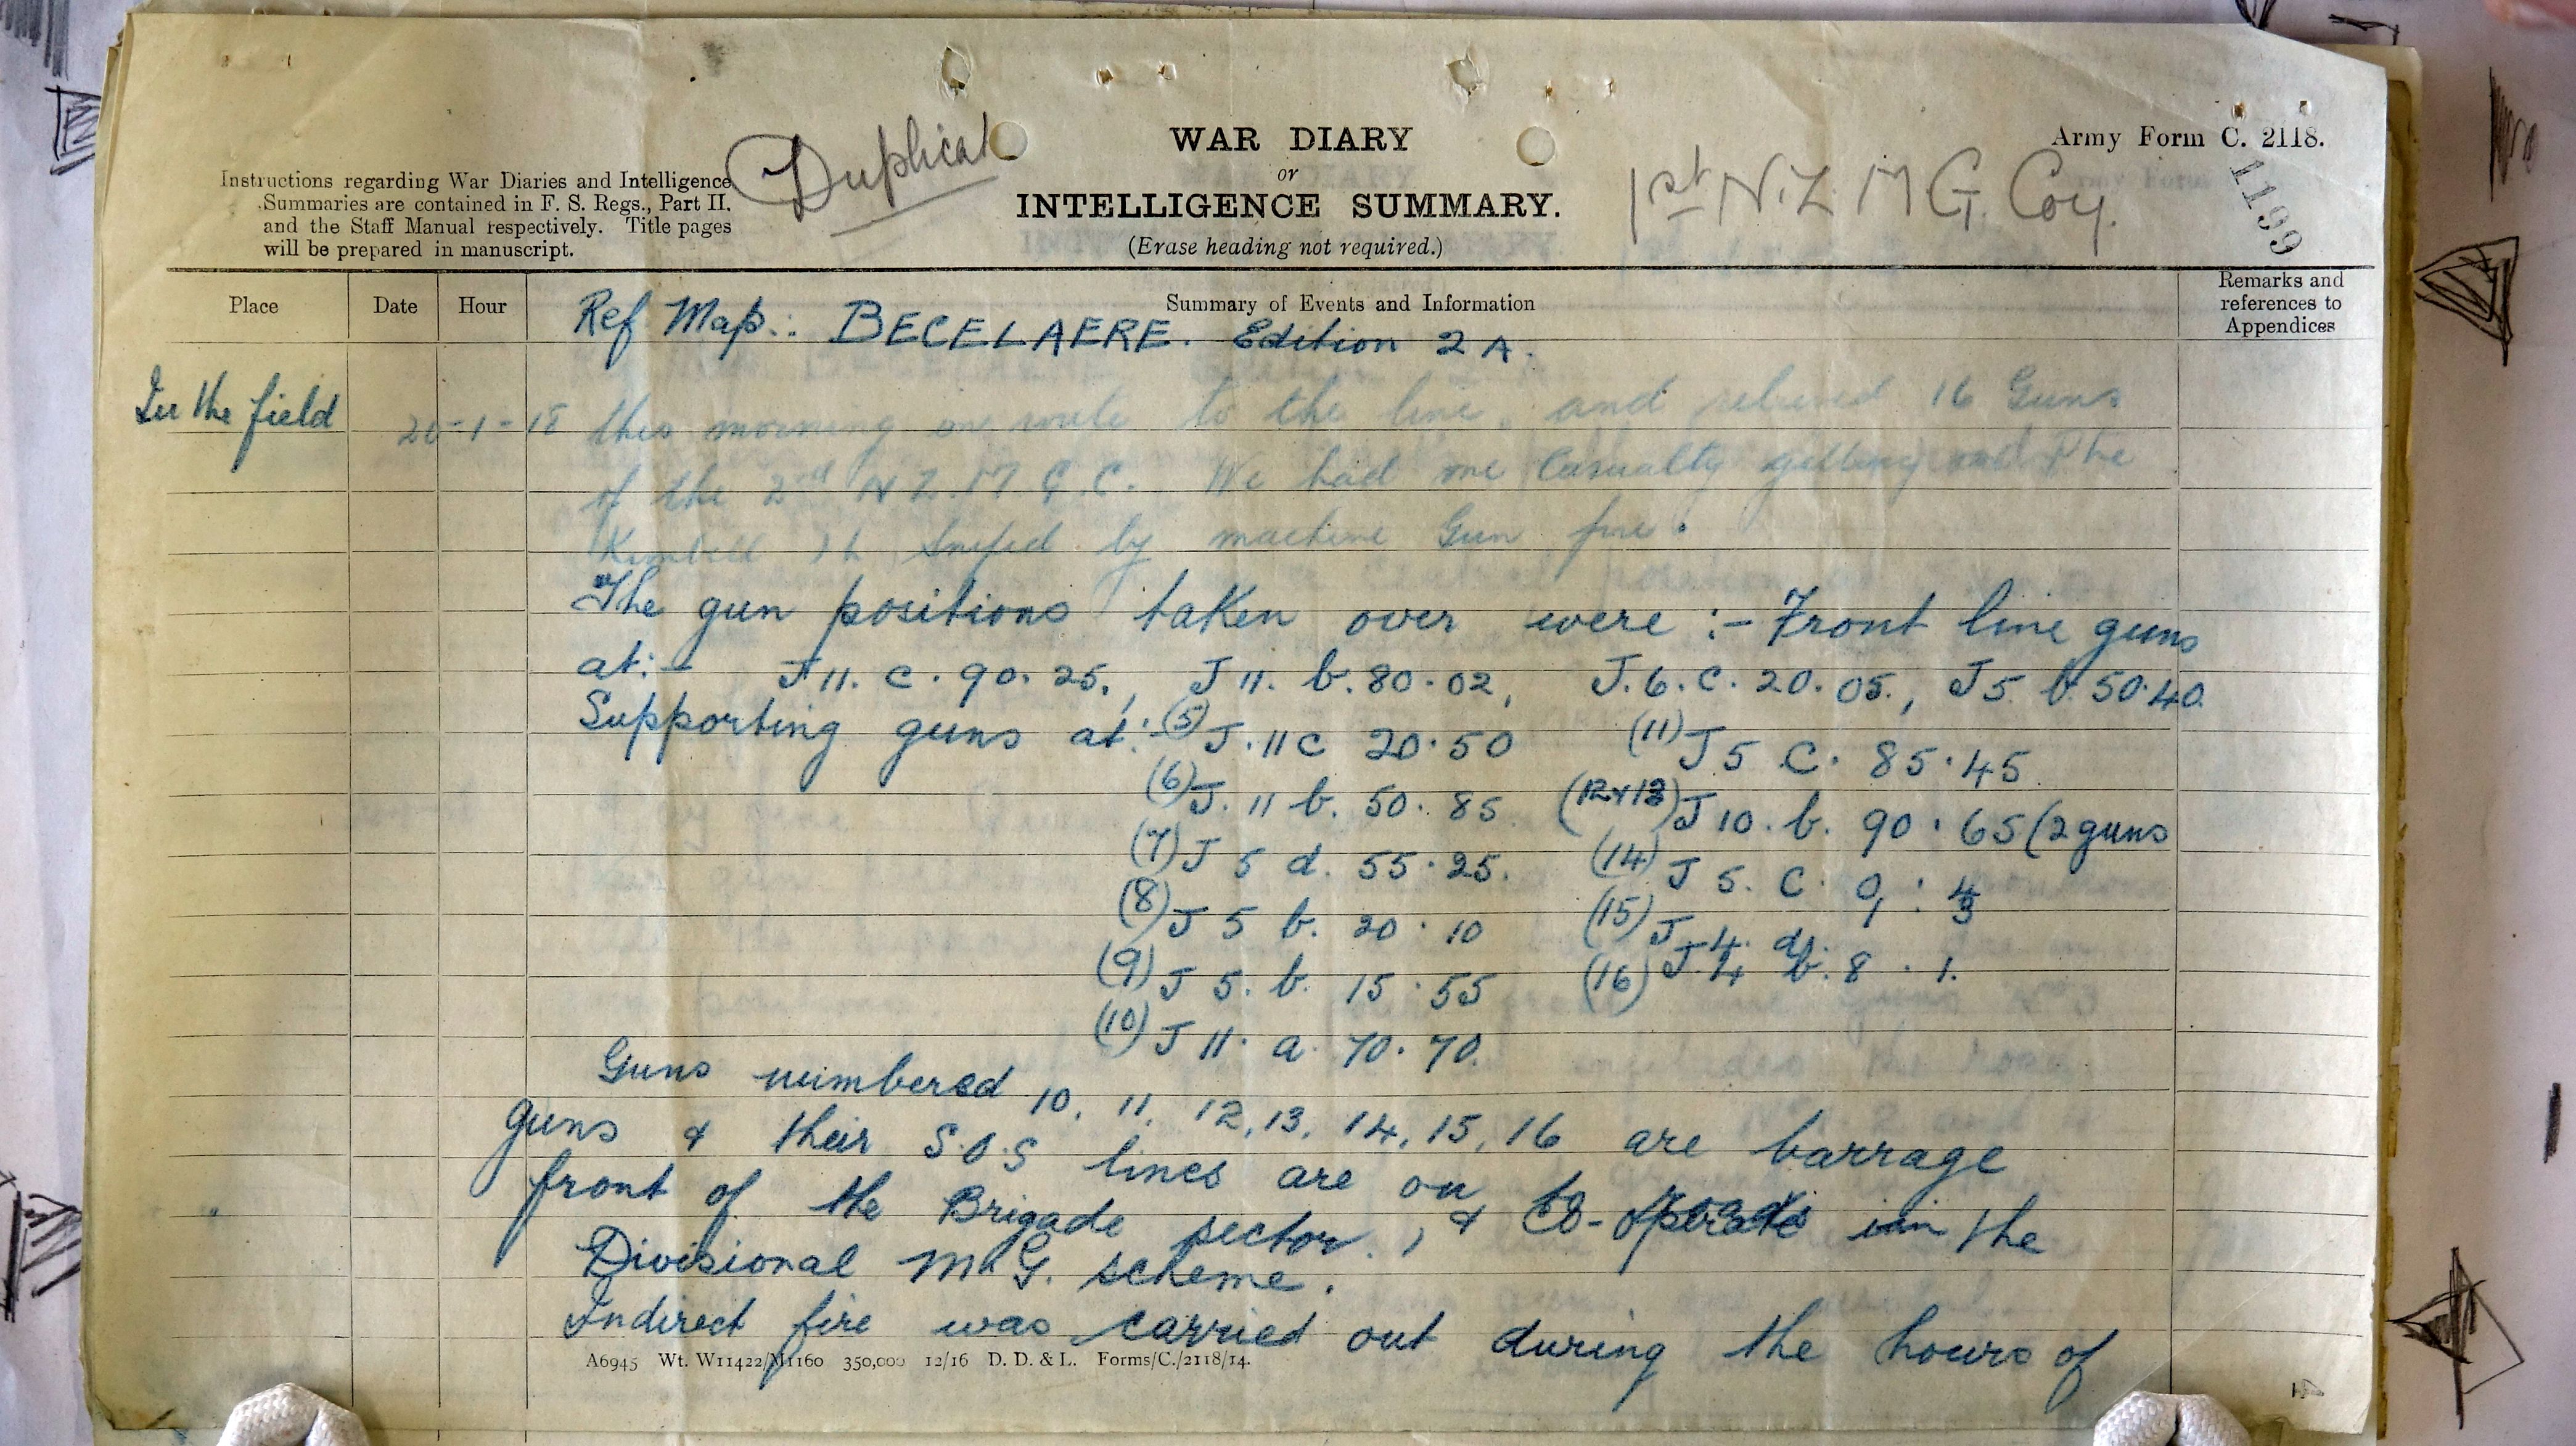 Duplicat
WAR DIARY
or
INTELLIGENCE SUMMARY.
(Erase heading not required.)
Army Form C. 2118.
1st N.Z. M G. Coy.
1199
Instructions regarding War Diaries and Intelligence
Summaries are contained in F. S. Regs., Part II.
and the Staff Manual respectively. Title pages
will be prepared in manuscript.
Place Date Hour Summary of Events and Information
Remarks and
references to
Appendices
Ref Map:. BECELAERE. Edition 2 A.
In the field
-1-18 this morning en route to the line, and relieved 16 Guns
of the 2nd N Z. M G. C. We had one Casualty getting
sniped by machine Gun fire.
The gun positions taken over were :- Front line guns
at:- J 11. c. 90. 25., J 11. b. 80. 02, J. 6. c. 20. 05., J 5 b. 50.40.
Supporting guns at:- (5) J. 11 c 20.50 (11) J 5 C. 85.45
(6) J. 11 b. 50. 85 (12 & 13) J 10. b. 90. 65 (2 guns
(7) J 5 d. 55.25. (14) J 5. C.
(8) J 5 b. 20. 10 (15) J 4. d.
(9) J 5. b. 15.55 (16) J. 4 b. 8 . 1.
(10) J 11. a. 70. 70.
Guns numbered 10, 11, 12, 13, 14, 15, 16 are barrage
guns & their S.O.S lines are on
front of the Brigade sector., & Co-operate in the
Divisional M.G. scheme.
Indirect fire was carried out during the hours of
A6945 Wt. W11422/M1160 350,000 12/16 D. D. & L. Forms/C./2118/14.